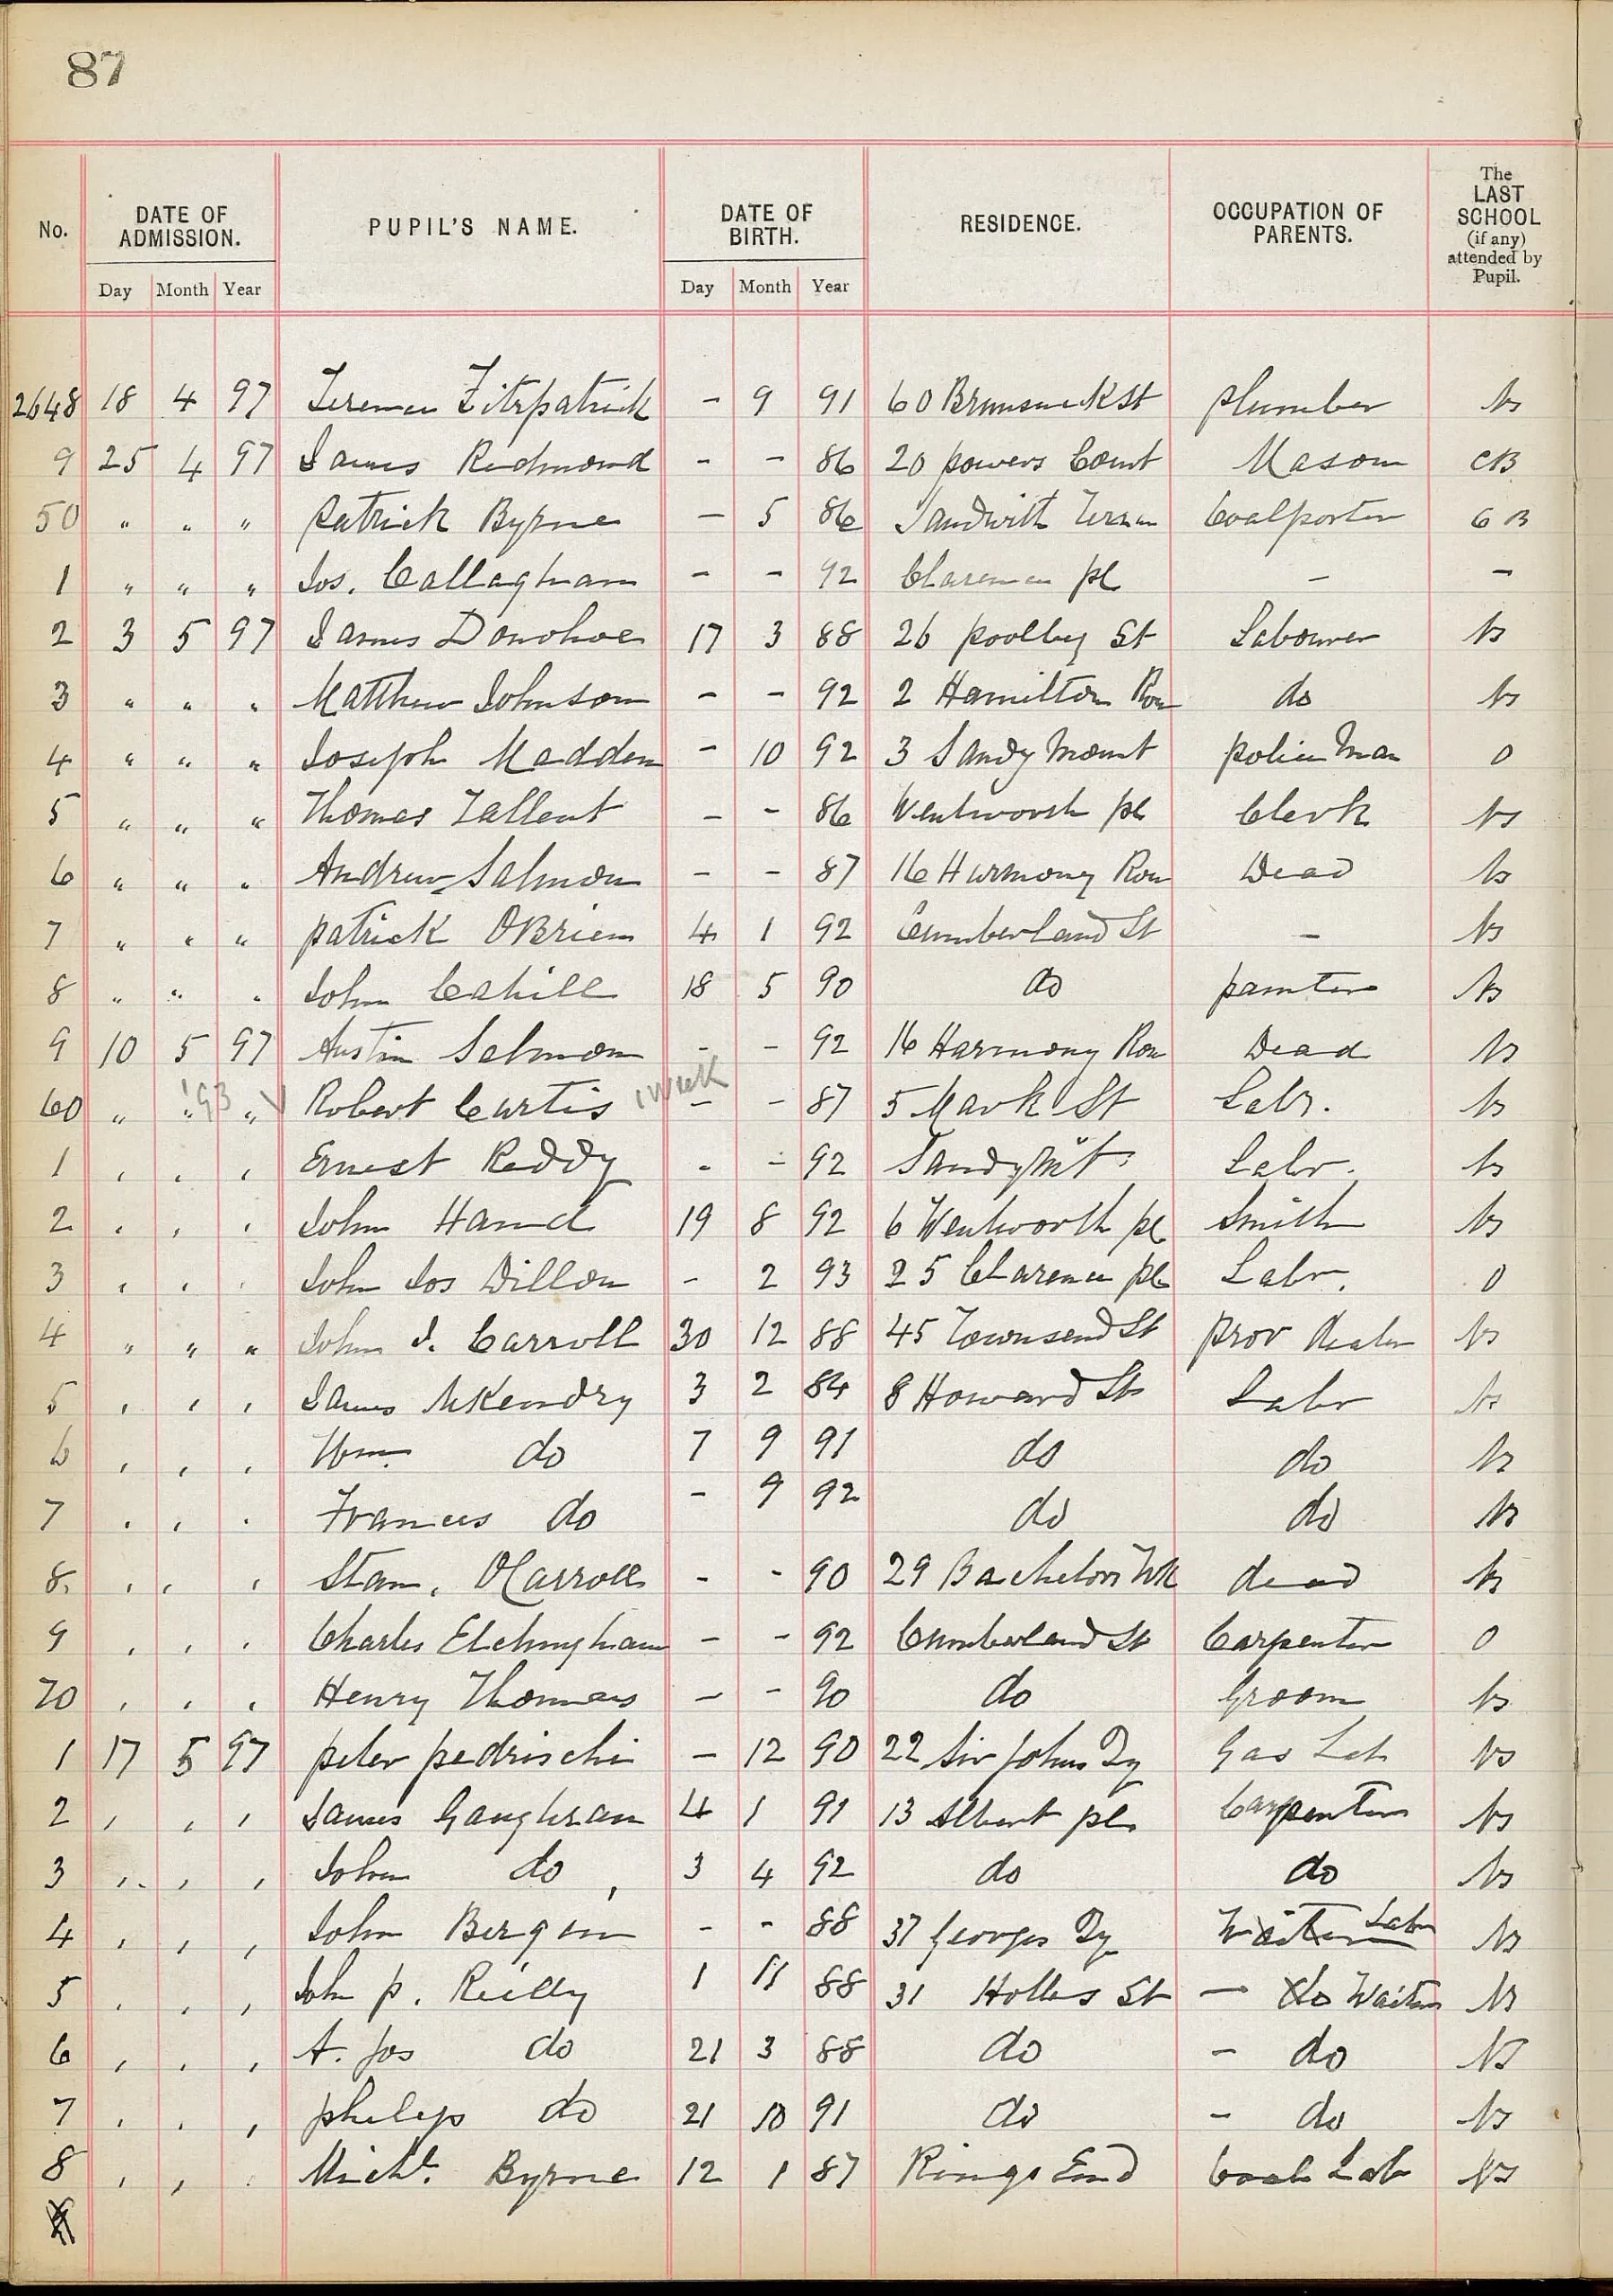 87
No. DATE OF ADMISSION. PUPIL'S NAME. DATE OF BIRTH. RESIDENCE. OCCUPATION OF PARENTS. The LAST SCHOOL (if any) attended by Pupil.
Day Month Year Day Month Year
2648 18 4 97 Terence Fitzpatrick - 9 91 60 Brunswick St plumber Ns
9 25 4 97 James Redmond - - 86 20 powers Court Mason CB
50 " " " Patrick Byrne - 5 86 Sandwith Terrace Coalporter CB
1 " " " Jos. Callaghan - - 92 Clarence pl - -
2 3 5 97 James Donohoe 17 3 88 26 poolbeg St Labourer Ns
3 " " " Matthew Johnson - - 92 2 Hamilton Row do Ns
4 " " " Joseph Madden - 10 92 3 Sandy Mount policeman 0
5 " " " Thomas Tallent - - 86 Wentworth pl Clerk Ns
6 " " " Andrew Salmon - - 87 16 Harmony Row Dead Ns
7 " " " patrick OBrien 4 1 92 Cumberland St - Ns
8 " " " John Cahill 18 5 90 do painter Ns
9 10 5 97 Austin Salmon - - 92 16 Harmony Row Dead Ns
60 " " '93 " V Robert Curtis 1 week - - 87 5 Mark St Labr. Ns
1 " " " Ernest Reddy - - 92 Sandymt Labr. Ns
2 " " " John Hand 19 8 92 6 Wentworth pl Smith Ns
3 " " " John Jos Dillon - 2 93 25 Clarence pl Labr. 0
4 " " " John J. Carroll 30 12 88 45 Townsend St prov dealer Ns
5 " " " James McKendry 3 2 84 8 Howard St Labr Ns
6 " " " Wm. do 7 9 91 do do Ns
7 " " " Frances do - 9 92 do do Ns
8. " " " Stan. OCarroll - - 90 29 Bachelors Wk dead Ns
9 " " " Charles Etchingham - - 92 Cumberland St Carpenter 0
70 " " " Henry Thomas - - 90 do Groom Ns
1 17 5 97 peter pedrischi - 12 90 22 Sir Johns Qy Gas Lab Ns
2 " " " James Gaughran 4 1 91 13 Albert pl. Carpenter Ns
3 " " " John do 3 4 92 do do Ns
4 " " " John Bergin - - 88 37 Georges Qy Waiter Labr Ns
5 " " " John p. Reilly 1 11 88 31 Holles St - do Waiter Ns
6 " " " A. Jos do 21 3 88 do - do Ns
7 " " " philip do 21 10 91 do - do Ns
8 " " " Michl. Byrne 12 1 87 Rings End Coal Lab Ns